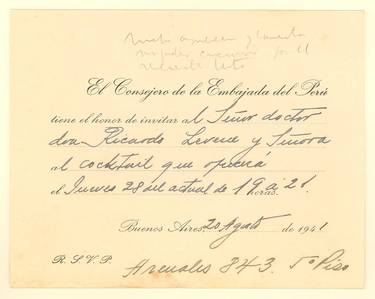 El Consejero de la Embajada del Perú
tiene el honor de invitar al Señor doctor
don Ricardo Levene y Señora
al cocktail que ofrecerá
el Jueves 28 del actual de 19 a 21. horas.
Buenos Aires 20 Agosto de 1941
R. S. V. P. Arenales 843. 5º Piso